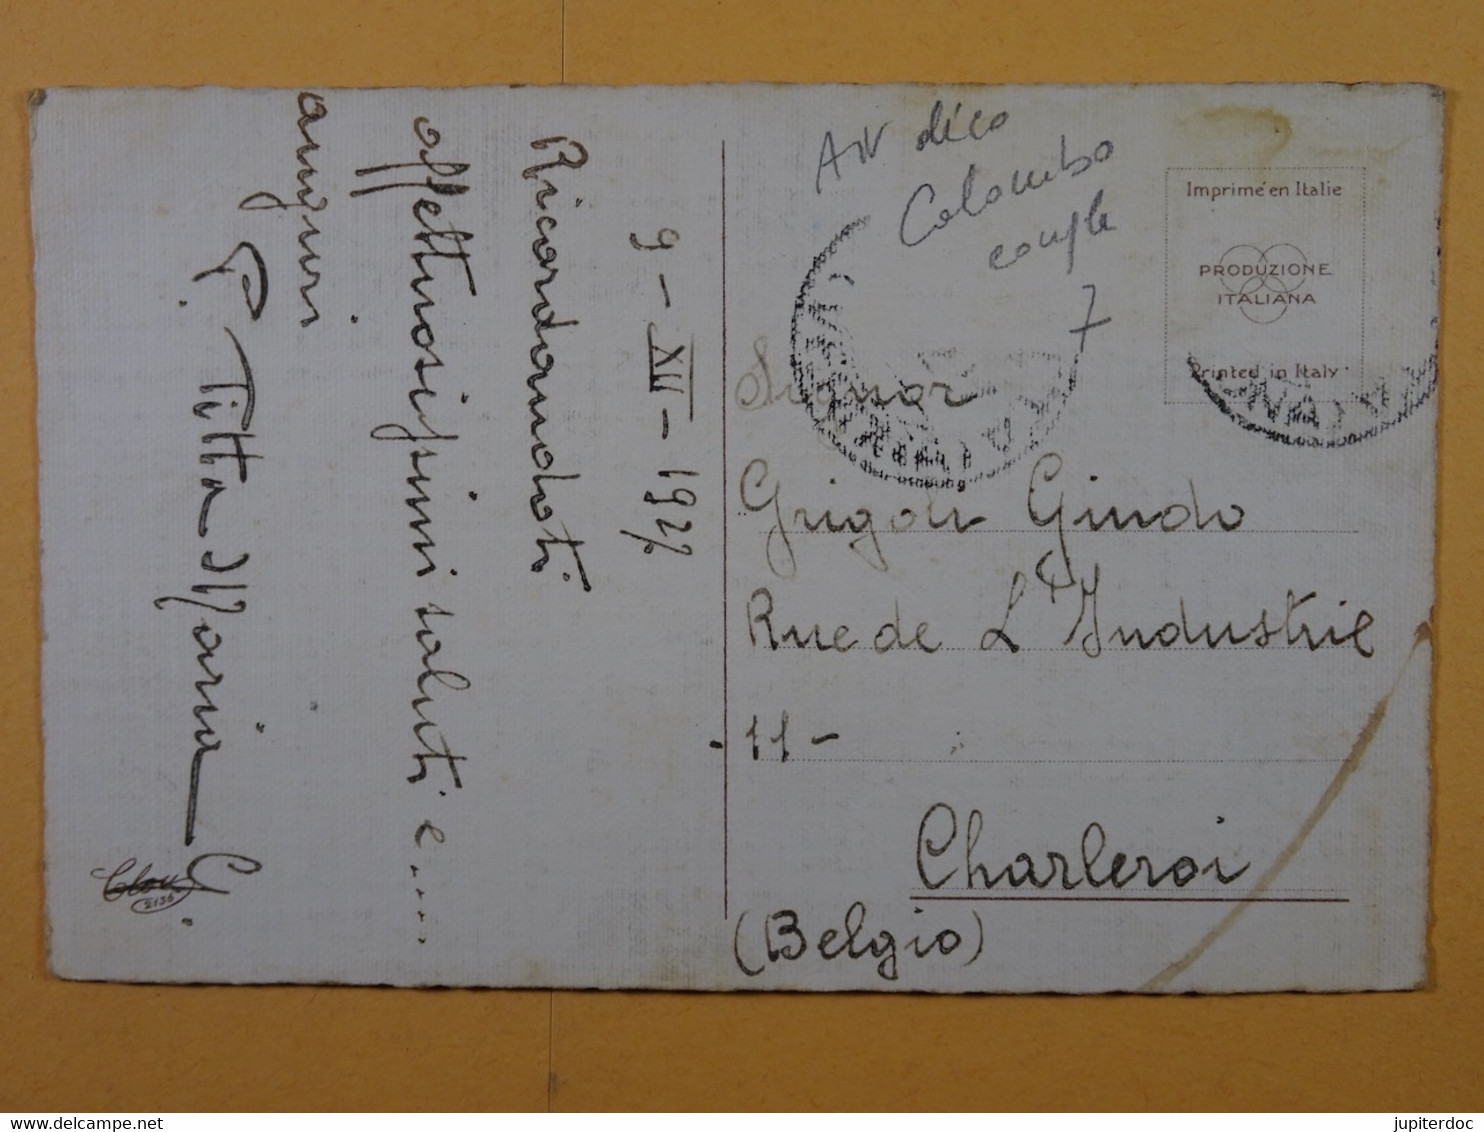 9 - XII - 1927
Ricordandoti
affettuosissimi saluti e....
auguri
G. Titta Maria G.
2135
Art déco
Colombo
couple
7
Imprimé en Italie
PRODUZIONE
ITALIANA
Printed in Italy
Signor
Grigoli Guido
Rue de L'Industrie
11 -
Charleroi
(Belgio)
jupiterdoc